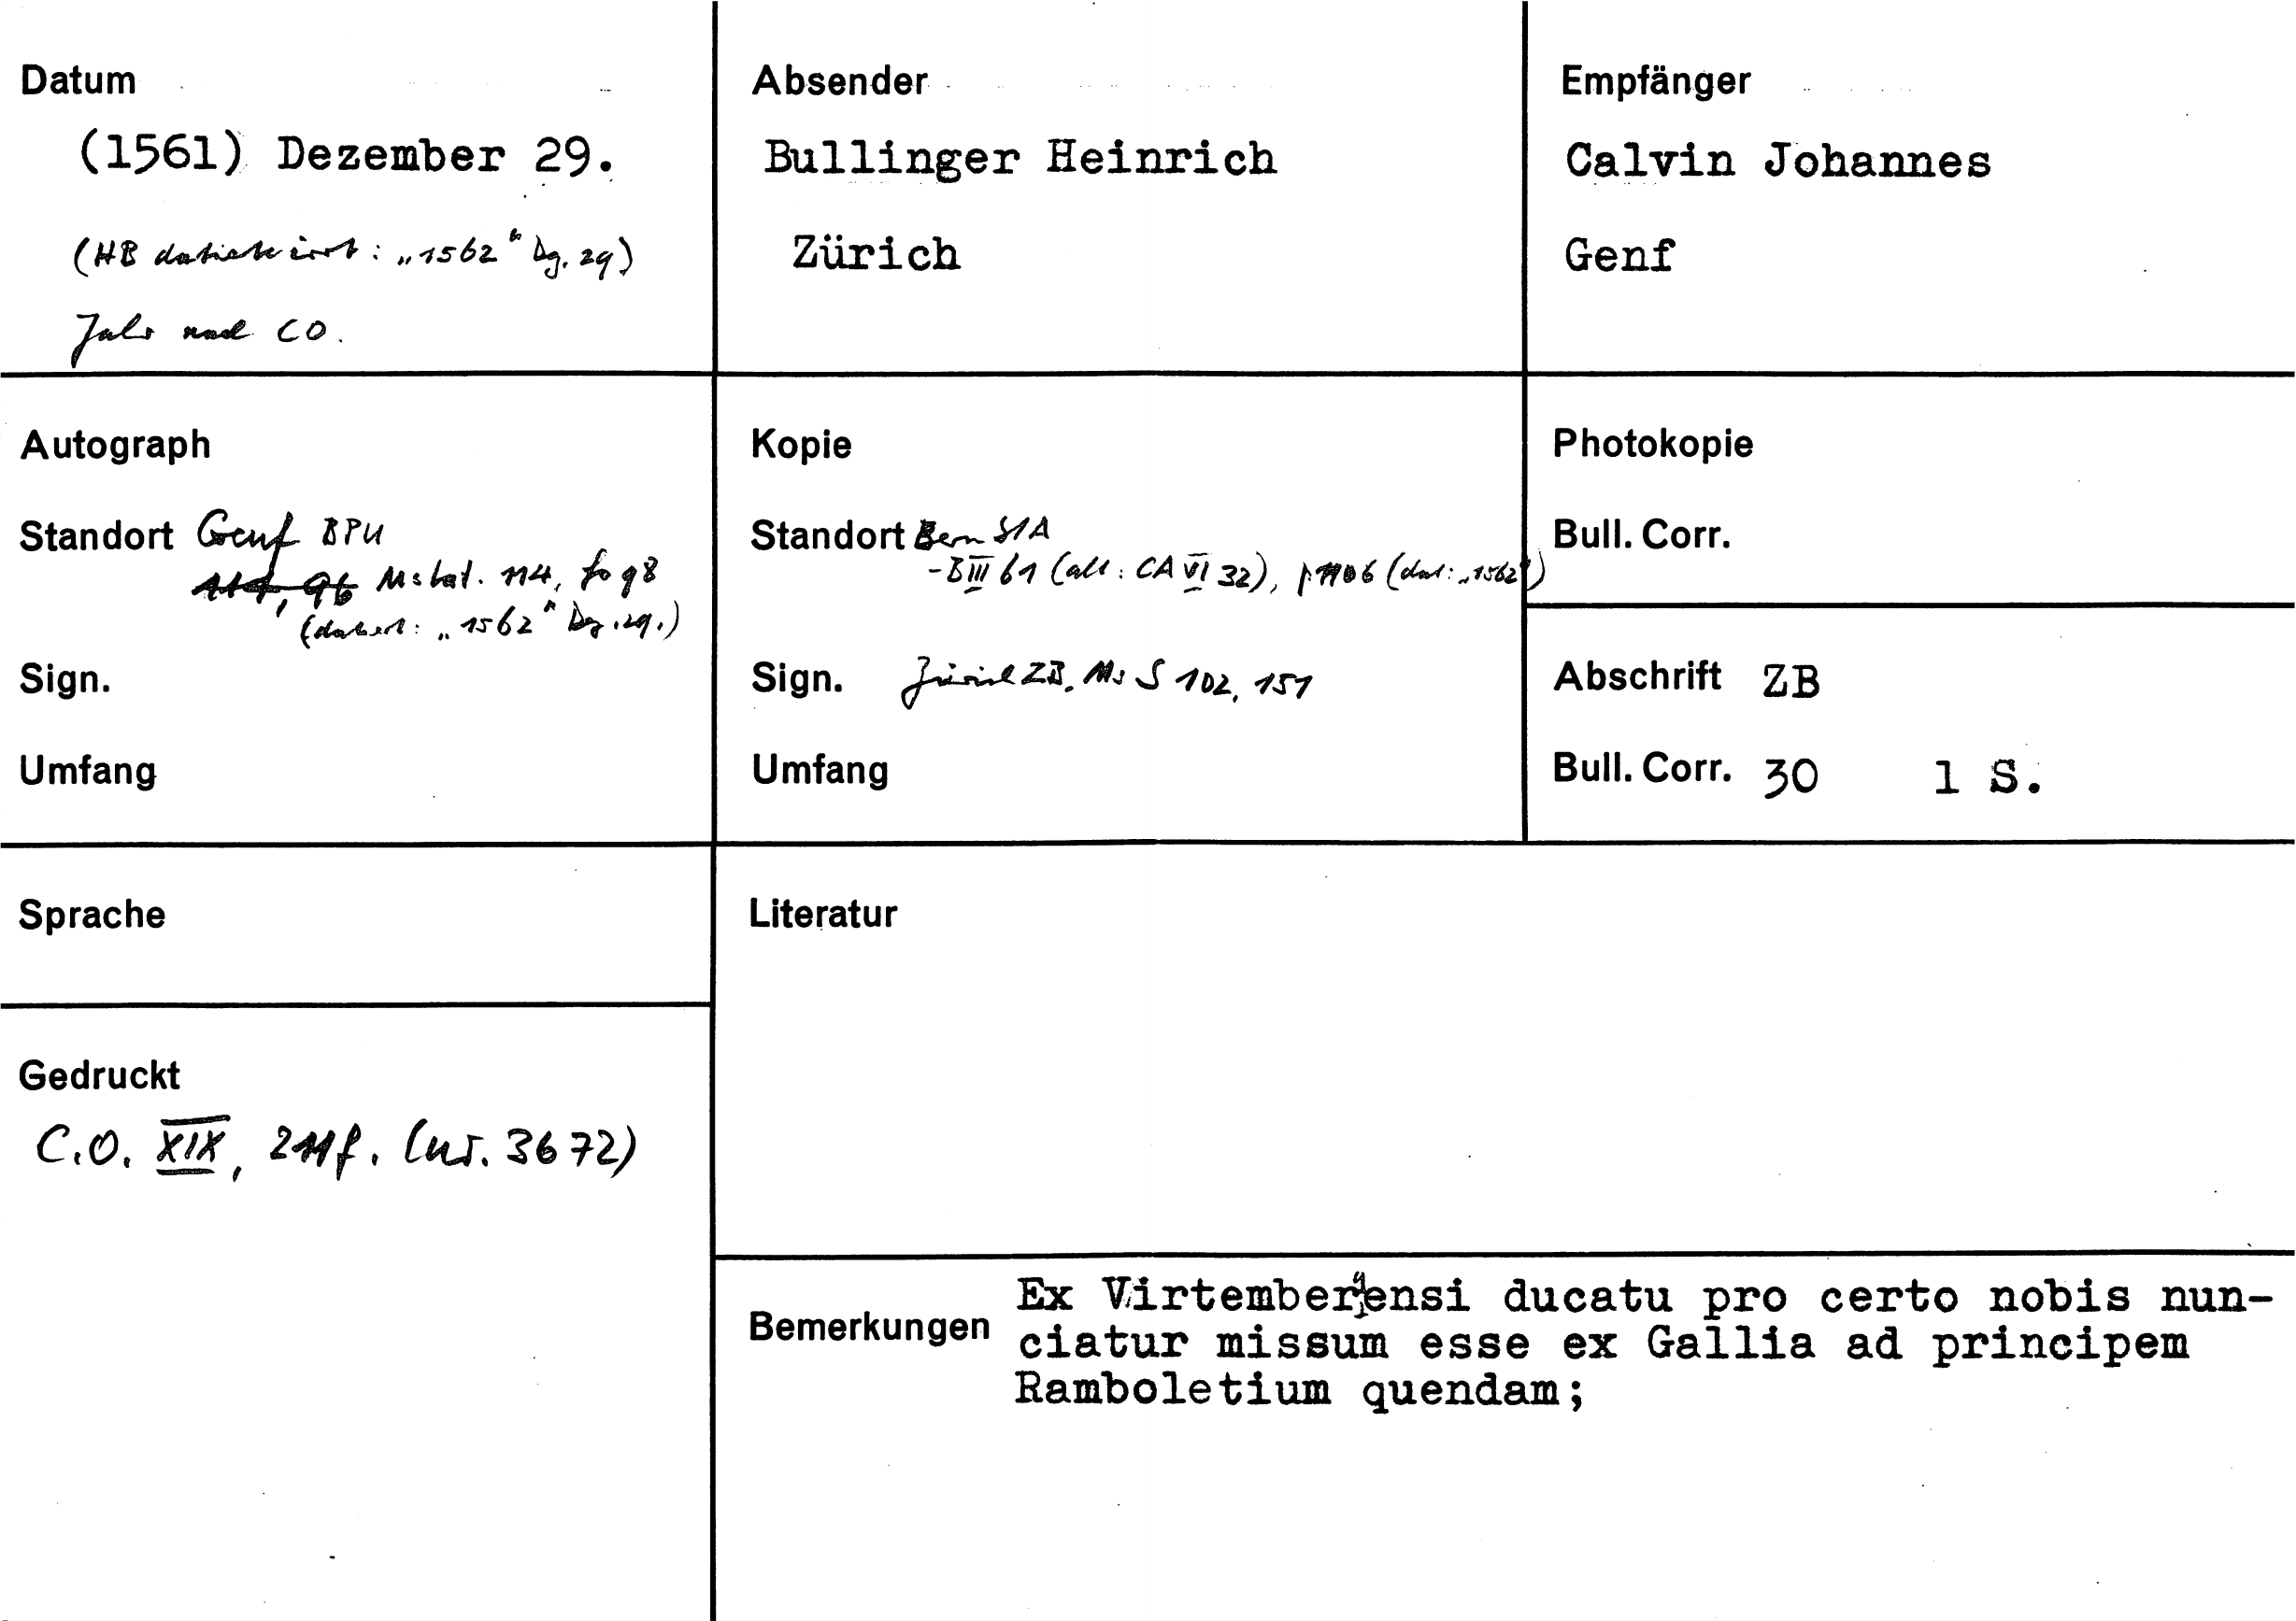 Datum
(1561) Dezember 29.
(HB datiert irrt: „1562“ Dz. 29)
Jahr nach CO.
Absender
Bullinger Heinrich
Zürich
Empfänger
Calvin Johannes
Genf
Autograph
Standort Genf BPU
Ms lat. 114, fo 98
(datiert: „1562“ Dz. 29.)
Sign.
Umfang
Kopie
Standort Bern StA
-B III 61 (alt: CA VI 32), p 1106 (dat: „1562“)
Sign. Zürich ZB, Ms S 102, 151
Umfang
Photokopie
Bull. Corr.
Abschrift ZB
Bull. Corr. 30 1 S.
Sprache
Literatur
Gedruckt
C.O. XIX, 211f. (nr. 3672)
Bemerkungen
Ex Virtembergensi ducatu pro certo nobis nun-
ciatur missum esse ex Gallia ad principem
Ramboletium quendam;